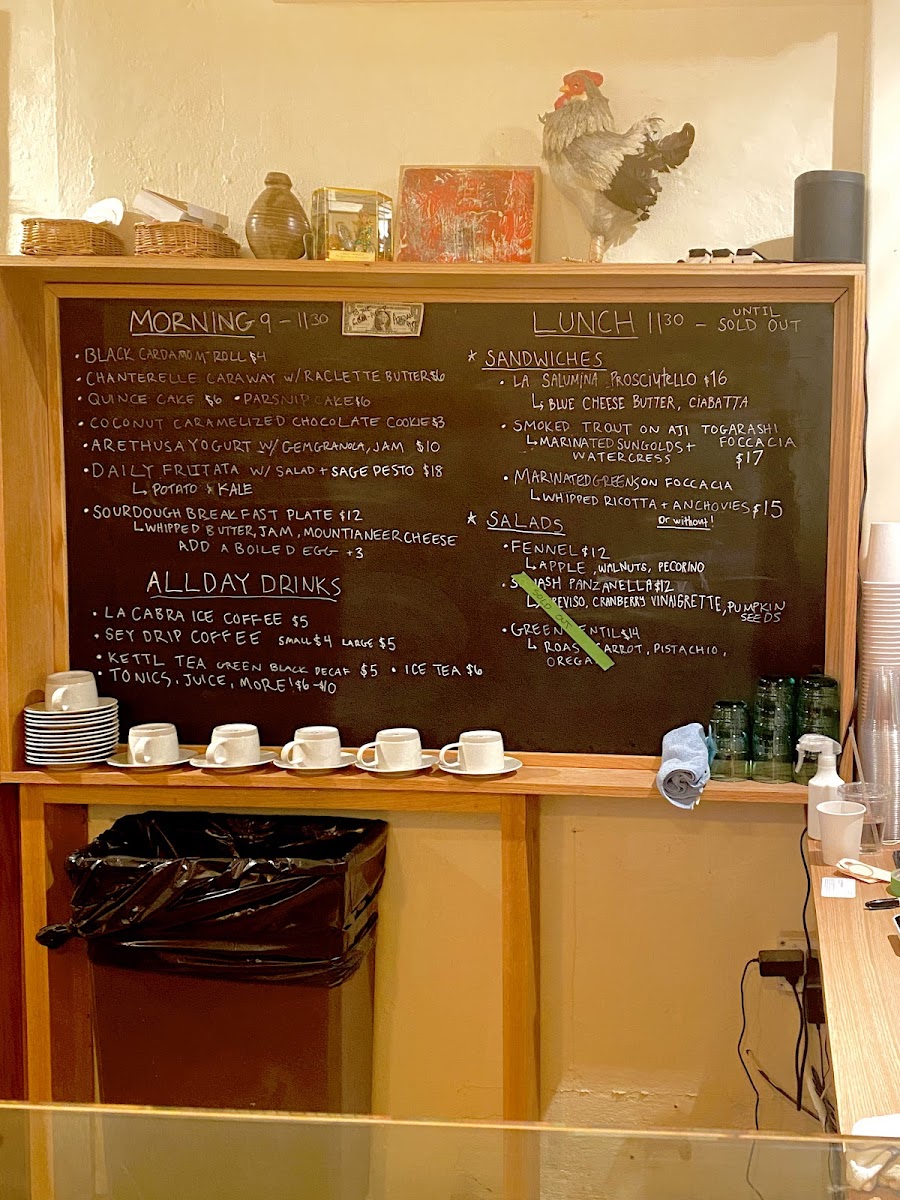 MORNING 9 - 1130
• BLACK CARDAMOM ROLL $4
• CHANTERELLE CARAWAY W/ RACLETTE BUTTER $6
• QUINCE CAKE $6 • PARSNIP CAKE $6
• COCONUT CARAMELIZED CHOCOLATE COOKIE $3
• ARETHUSA YOGURT W/ GEM GRANOLA, JAM $10
• DAILY FRITTATA W/ SALAD + SAGE PESTO $18
↳ POTATO & KALE
• SOURDOUGH BREAKFAST PLATE $12
↳ WHIPPED BUTTER, JAM, MOUNTIANEER CHEESE
ADD A BOILED EGG +3
ALLDAY DRINKS
• LA CABRA ICE COFFEE $5
• SEY DRIP COFFEE SMALL $4 LARGE $5
• KETTL TEA GREEN BLACK DECAF $5 • ICE TEA $6
• TONICS, JUICE, MORE! $6-$10
LUNCH 1130 - UNTIL
SOLD OUT
* SANDWICHES
• LA SALUMINA PROSCIUTELLO $16
↳ BLUE CHEESE BUTTER, CIABATTA
• SMOKED TROUT ON AJI TOGARASHI
FOCCACIA
↳ MARINATED SUNGOLDS +
WATERCRESS $17
• MARINATED GREENS ON FOCCACIA
↳ WHIPPED RICOTTA + ANCHOVIES $15
Or without!
* SALADS
• FENNEL $12
↳ APPLE, WALNUTS, PECORINO
• PANZANELLA $12
CRANBERRY VINAIGRETTE, PUMPKIN
SEEDS
SOLD OUT
• GREEN $14
PISTACHIO,